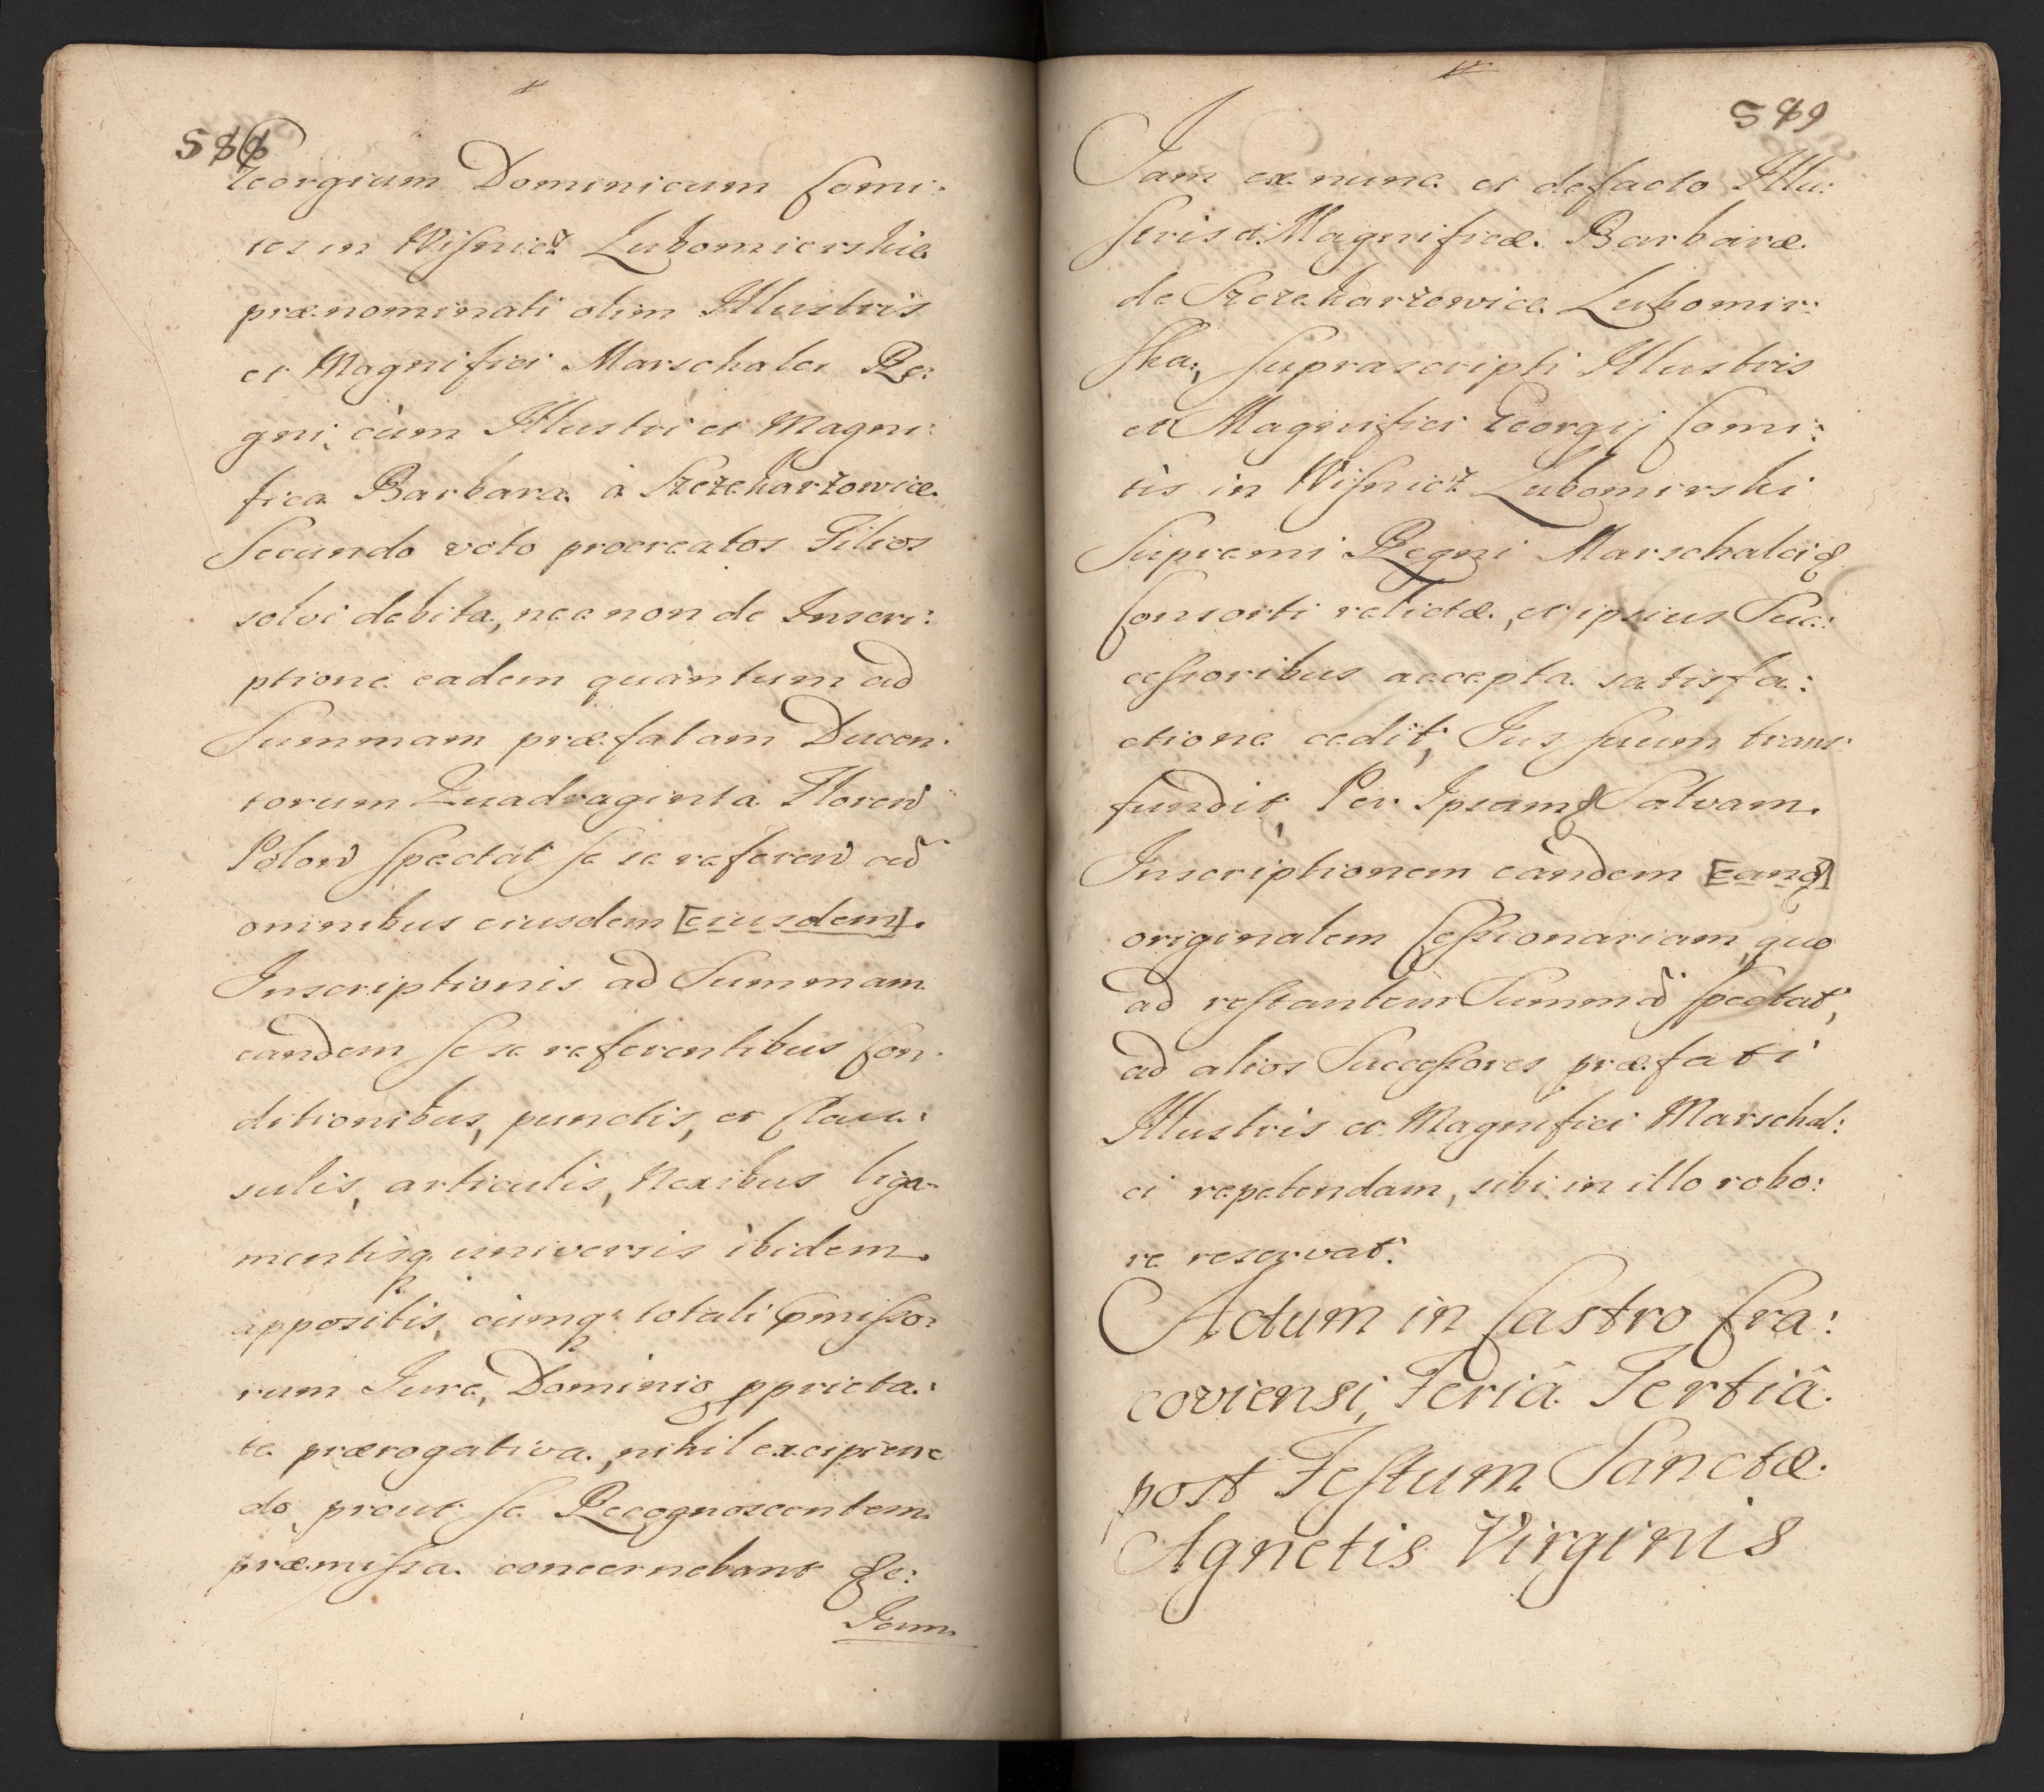 588
Georgium Dominicum Comi:
tes in Wisnicz Lubomierskie
prænominati olim Illustris
et Magnifici Marschalci Re:
gni, cùm Illustri et Magni:
fica Barbara à Szczekarzowice
Secundo voto procreatos Filios
solvi debita, nec non de Inscri:
ptione eadem quàntum ad
Summam præfatam Ducen:
torum Quadraginta Floren
Polon spectat se se referen ad
omnibus eiusdem [eiusdem]
Inscriptionis ad Summam
eandem se se referentibus Con:
ditionibus, punctis, et Clau:
sulis, articulis, Nexibus liga-
mentisq. universis ibidem
appositis, cùmq. totali pmisso:
rum Jure, Dominio ppprieta:
te prærogativa, nihil excipien
do, prout se Recognoscentem
præmissa concernebant &c:
Jam
589
Jam ex nunc et defacto Illu:
stris et Magnificæ Barbaræ
de Szczekarzowice Lubomir:
ska, Suprascripti Illustris
et Magnifici Georgij Comi:
tis in Wisnicz Lubomirski
Supremi Regni Marschalci &
Consorti relictæ, et ipsius Suc:
cessoribus accepta satisfa:
ctione cedit, Jus suum trans:
fundit, Per Ipsam & Salvam
Inscriptionem eandem [eand]
originalem Cessionariam, quo
ad restantem Summã spectat,
ad alios Successores præfati
Illustris et Magnifici Marschal:
ci repetendam, sibi in illo robo:
re reservat.
Actum in Castro Cra:
coviensi, Feriâ Tertiâ
post Festum Sanctæ
Agnetis Virginis